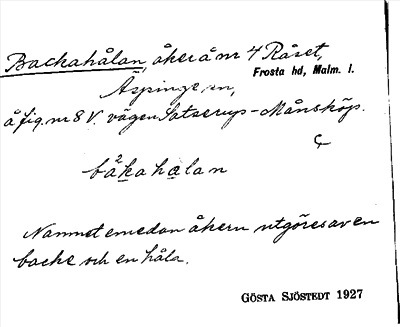 Backahålan, åker å nr 4 Råset,
Frosta hd, Malm. l.
Äspinge sn,
å fig. nr 8 V. vägen Satserup–Månsköp.
bakahalan
Namnet emedan åkern utgöres av en
backe och en håla.
GÖSTA SJÖSTEDT 1927